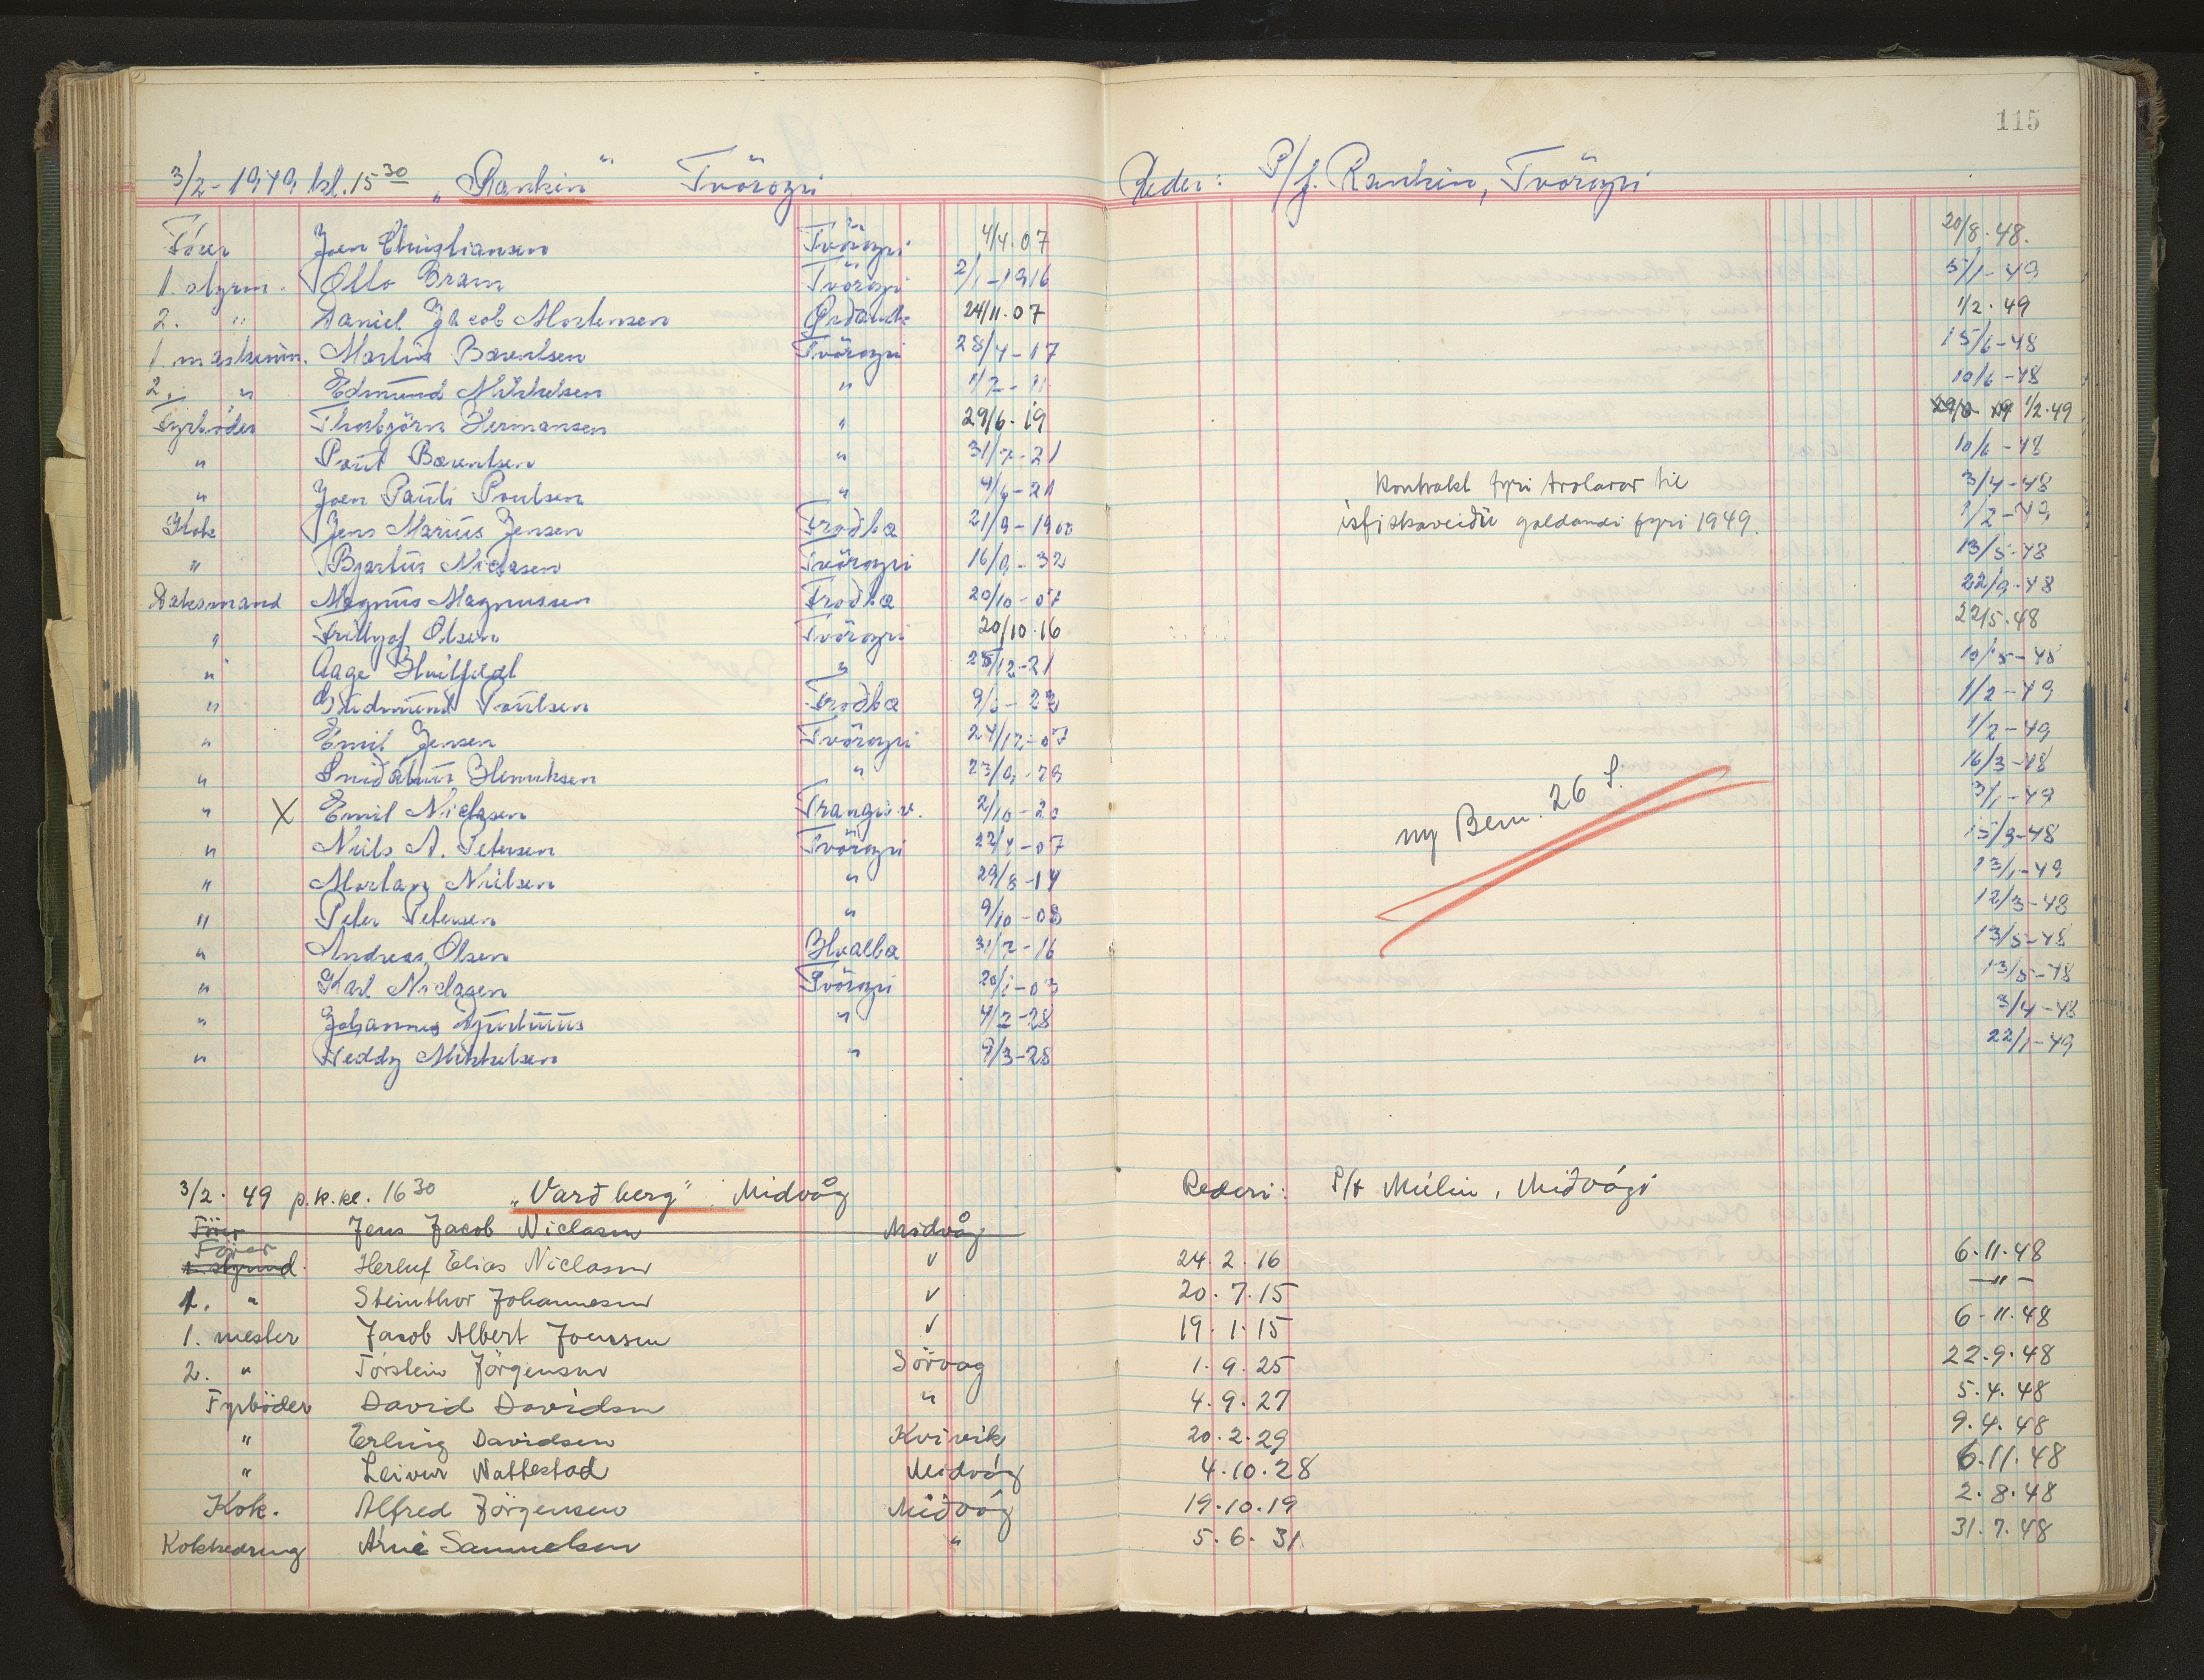 115
3/2-1949 kl. 15 30 „Rankin" Tvöroyri Reder: P/f. Rankin, Tvöroyri
Förer Joen Christiansen Tvöroyri 4/4.07 20/8.48.
1. styrm. Otto Bram Tvöroyri 2/1-1916 5/1-49
2. " Daniel Jacob Mortensen 24/11.07 1/2.49
1 maskinm. Martin Barentsen Tvöroyri 28/4-17 15/6-48
2. " Edmund Mikkelsen " 10/6-48
Fyrböder Thorbjörn Hermansen " 29/6.19 1/2.49
" Poul Barentsen " 31/7-21 10/6-48
" Joen Pauli Poulsen " 3/4-48
Kontrakt fyri trolarar til
Kok Jens Marius Jensen Frodba 21/9-1900 1/2-49
ísfiskaveiðu galdandi fyri 1949.
" Bjartur Niclasen Tvöroyri 16/9-32 13/5-48
Daksmand Magnus Magnussen Frodba 20/10-07 22/9-48
" Frithjof Olsen Tvöroyri 20/10.16 22/5.48
" Aage Huitfeldt " 25/12-21 10/5-48
" Gudmund Poulsen Frodba 1/2-49
" Emil Jensen Tvöroyri 27/12-07 1/2-49
" Henriksen " 16/3-48
" X Emil Niclasen Trangisv. 2/10-20 3/1-49
ny Bem. 26 S.
" Niels A. Petersen Tvöroyri 22/4-07 15/3-48
" Mortan Nielsen " 29/8-14 13/1-49
" Peter Petersen " 9/10-08 12/3-48
" Andreas Olsen Hvalba 31/7-16 13/5-48
" Karl Niclasen Tvöroyri 20/1-03 13/5-48
" Johannes Djurhuus " 4/2-28 3/4-48
" Teddy Mikkelsen " 9/3-28 22/1-49
3/2. 49 p.k.kl. 16 30 „Vardberg". Midvåg Rederi: P/f Mülin, Miðvági
Förer Jens Jacob Niclasen Midvåg
Förer
1. styrmd. Herluf Elias Niclasen v 24.2.16 6.11.48
1. " Steinthor Johannesen v 20.7.15 —"—
1. mester Jacob Albert Joensen v 19.1.15 6.11.48
2. " Torstein Jörgensen Sörvag 1.9.25 22.9.48
Fyrböder David Davidsen " 4.9.27 5.4.48
" Erling Davidsen Kvivik 20.2.29 9.4.48
" Leivur Nattestad Midvág 4.10.28 6.11.48
Kok. Alfred Jörgensen Miðvág 19.10.19 2.8.48
Kokkedreng Arne Samuelsen " 5.6.31 31.7.48